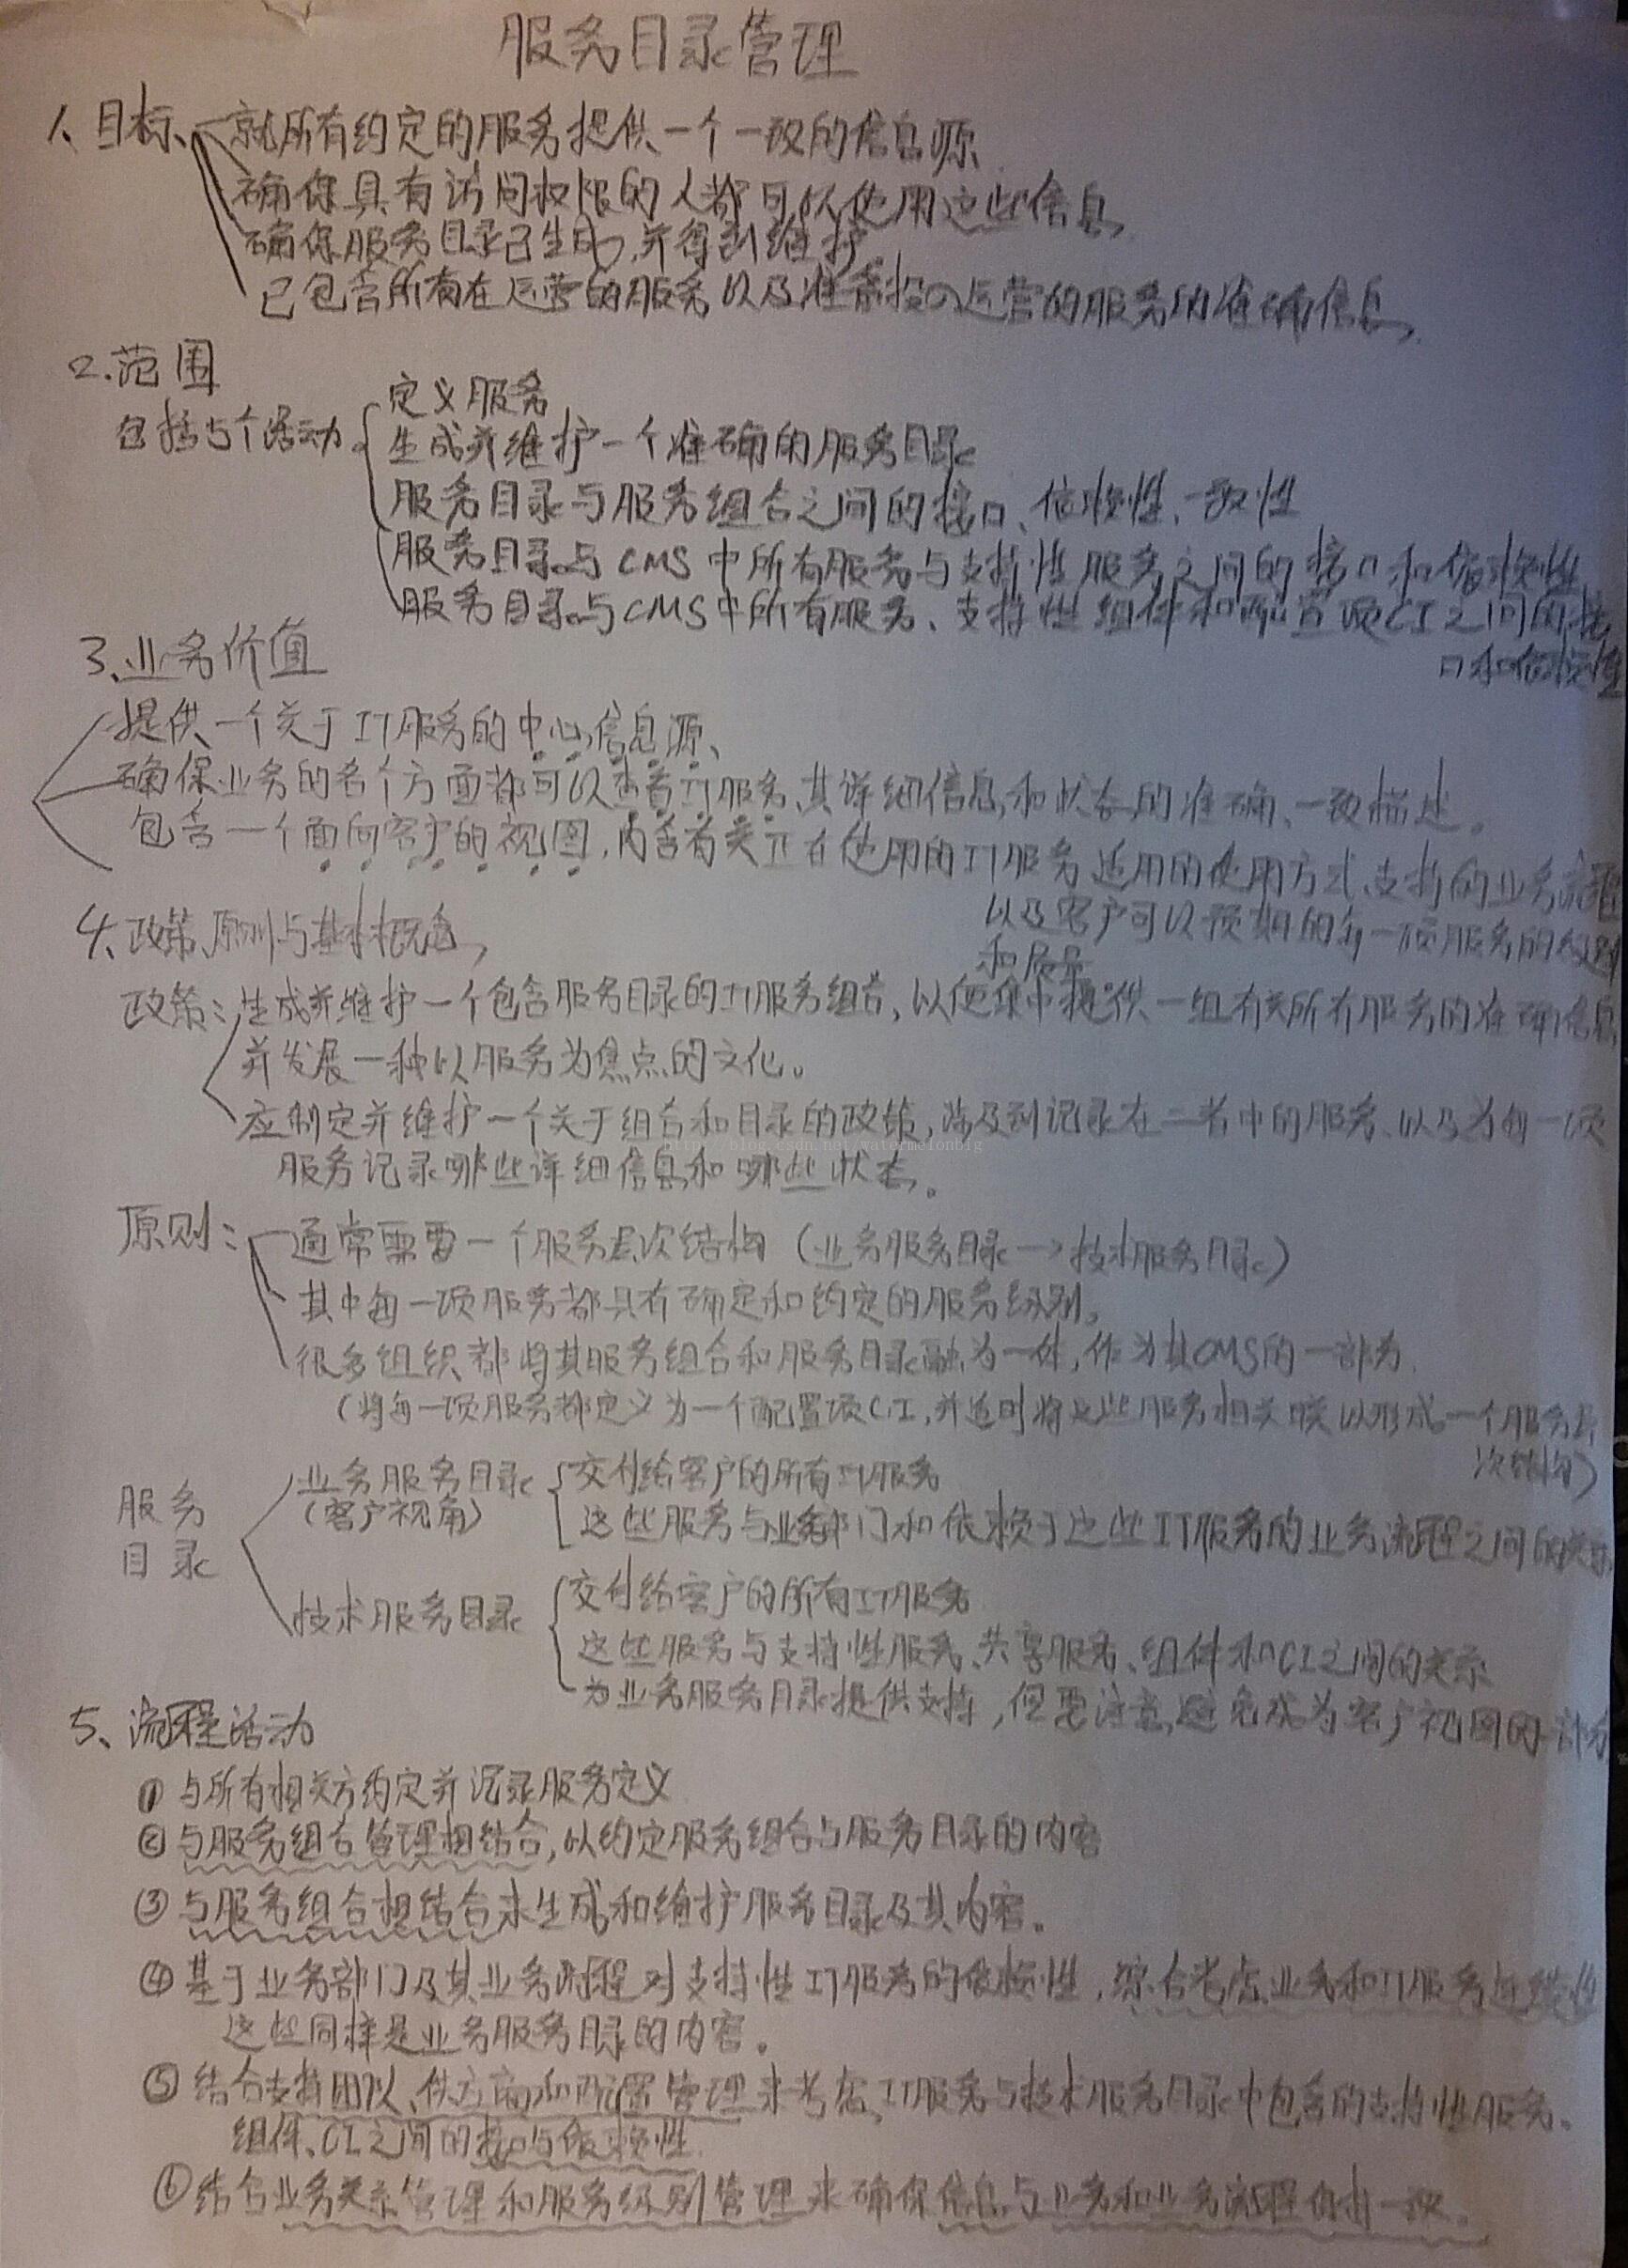 服务目录管理
1、目标、就所有约定的服务提供一个一致的信息源
确保具有访问权限的人都可以使用这些信息
确保服务目录已生成,并得到维护。
已包含所有在运营的服务以及准备投入运营的服务的准确信息,
2.范围
包括5个活动.
定义服务
生成并维护一个准确的服务目录
服务目录与服务组合之间的接口、依赖性、一致性
服务目录与CMS中所有服务与支持性服务之间的接口和依赖性
服务目录与CMS中所有服务、支持性组件和配置项CI之间的接
口和依赖性
3、业务价值
提供一个关于IT服务的中心信息源、
确保业务的各个方面都可以查看IT服务、其详细信息和状态的准确、一致描述。
包含一个面向客户的视图,内含有关正在使用的IT服务适用的使用方式、支持的业务流程
以及客户可以预期的每一项服务的级别
和质量
4、政策、原则与基本概念,
政策:生成并维护一个包含服务目录的IT服务组合,以便集中提供一组有关所有服务的准确信息
并发展一种以服务为焦点的文化。
应制定并维护一个关于组合和目录的政策,涉及到记录在二者中的服务、以及为每一项
http://blog.csdn.net/watermelonbig
服务记录哪些详细信息和哪些状态。
原则:通常需要一个服务层次结构(业务服务目录→技术服务目录)
其中每一项服务都具有确定和约定的服务级别。
很多组织都将其服务组合和服务目录融为一体,作为其CMS的一部分.
(将每一项服务都定义为一个配置项CI,并适时将这些服务相关联以形成一个服务层
次结构)
服务
目录
业务服务目录
(客户视角)
交付给客户的所有IT服务
这些服务与业务部门和依赖于这些IT服务的业务流程之间的关系
技术服务目录
交付给客户的所有IT服务
这些服务与支持性服务、共享服务、组件和CI之间的关系
为业务服务目录提供支持,但要注意,避免成为客户视图的一部分
5、流程活动
① 与所有相关方约定并记录服务定义
② 与服务组合管理相结合,以约定服务组合与服务目录的内容
③ 与服务组合相结合来生成和维护服务目录及其内容。
④ 基于业务部门及其业务流程对支持性IT服务的依赖性,综合考虑业务和IT服务连续性
这些同样是业务服务目录的内容。
⑤ 结合支持团队、供方商和配置管理来考虑IT服务与技术服务目录中包含的支持性服务、
组件、CI之间的接口与依赖性
⑥ 结合业务关系管理和服务级别管理来确保信息与业务和业务流程保持一致。